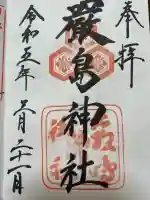 奉拝
嚴島神社
令和五年
月二十一日